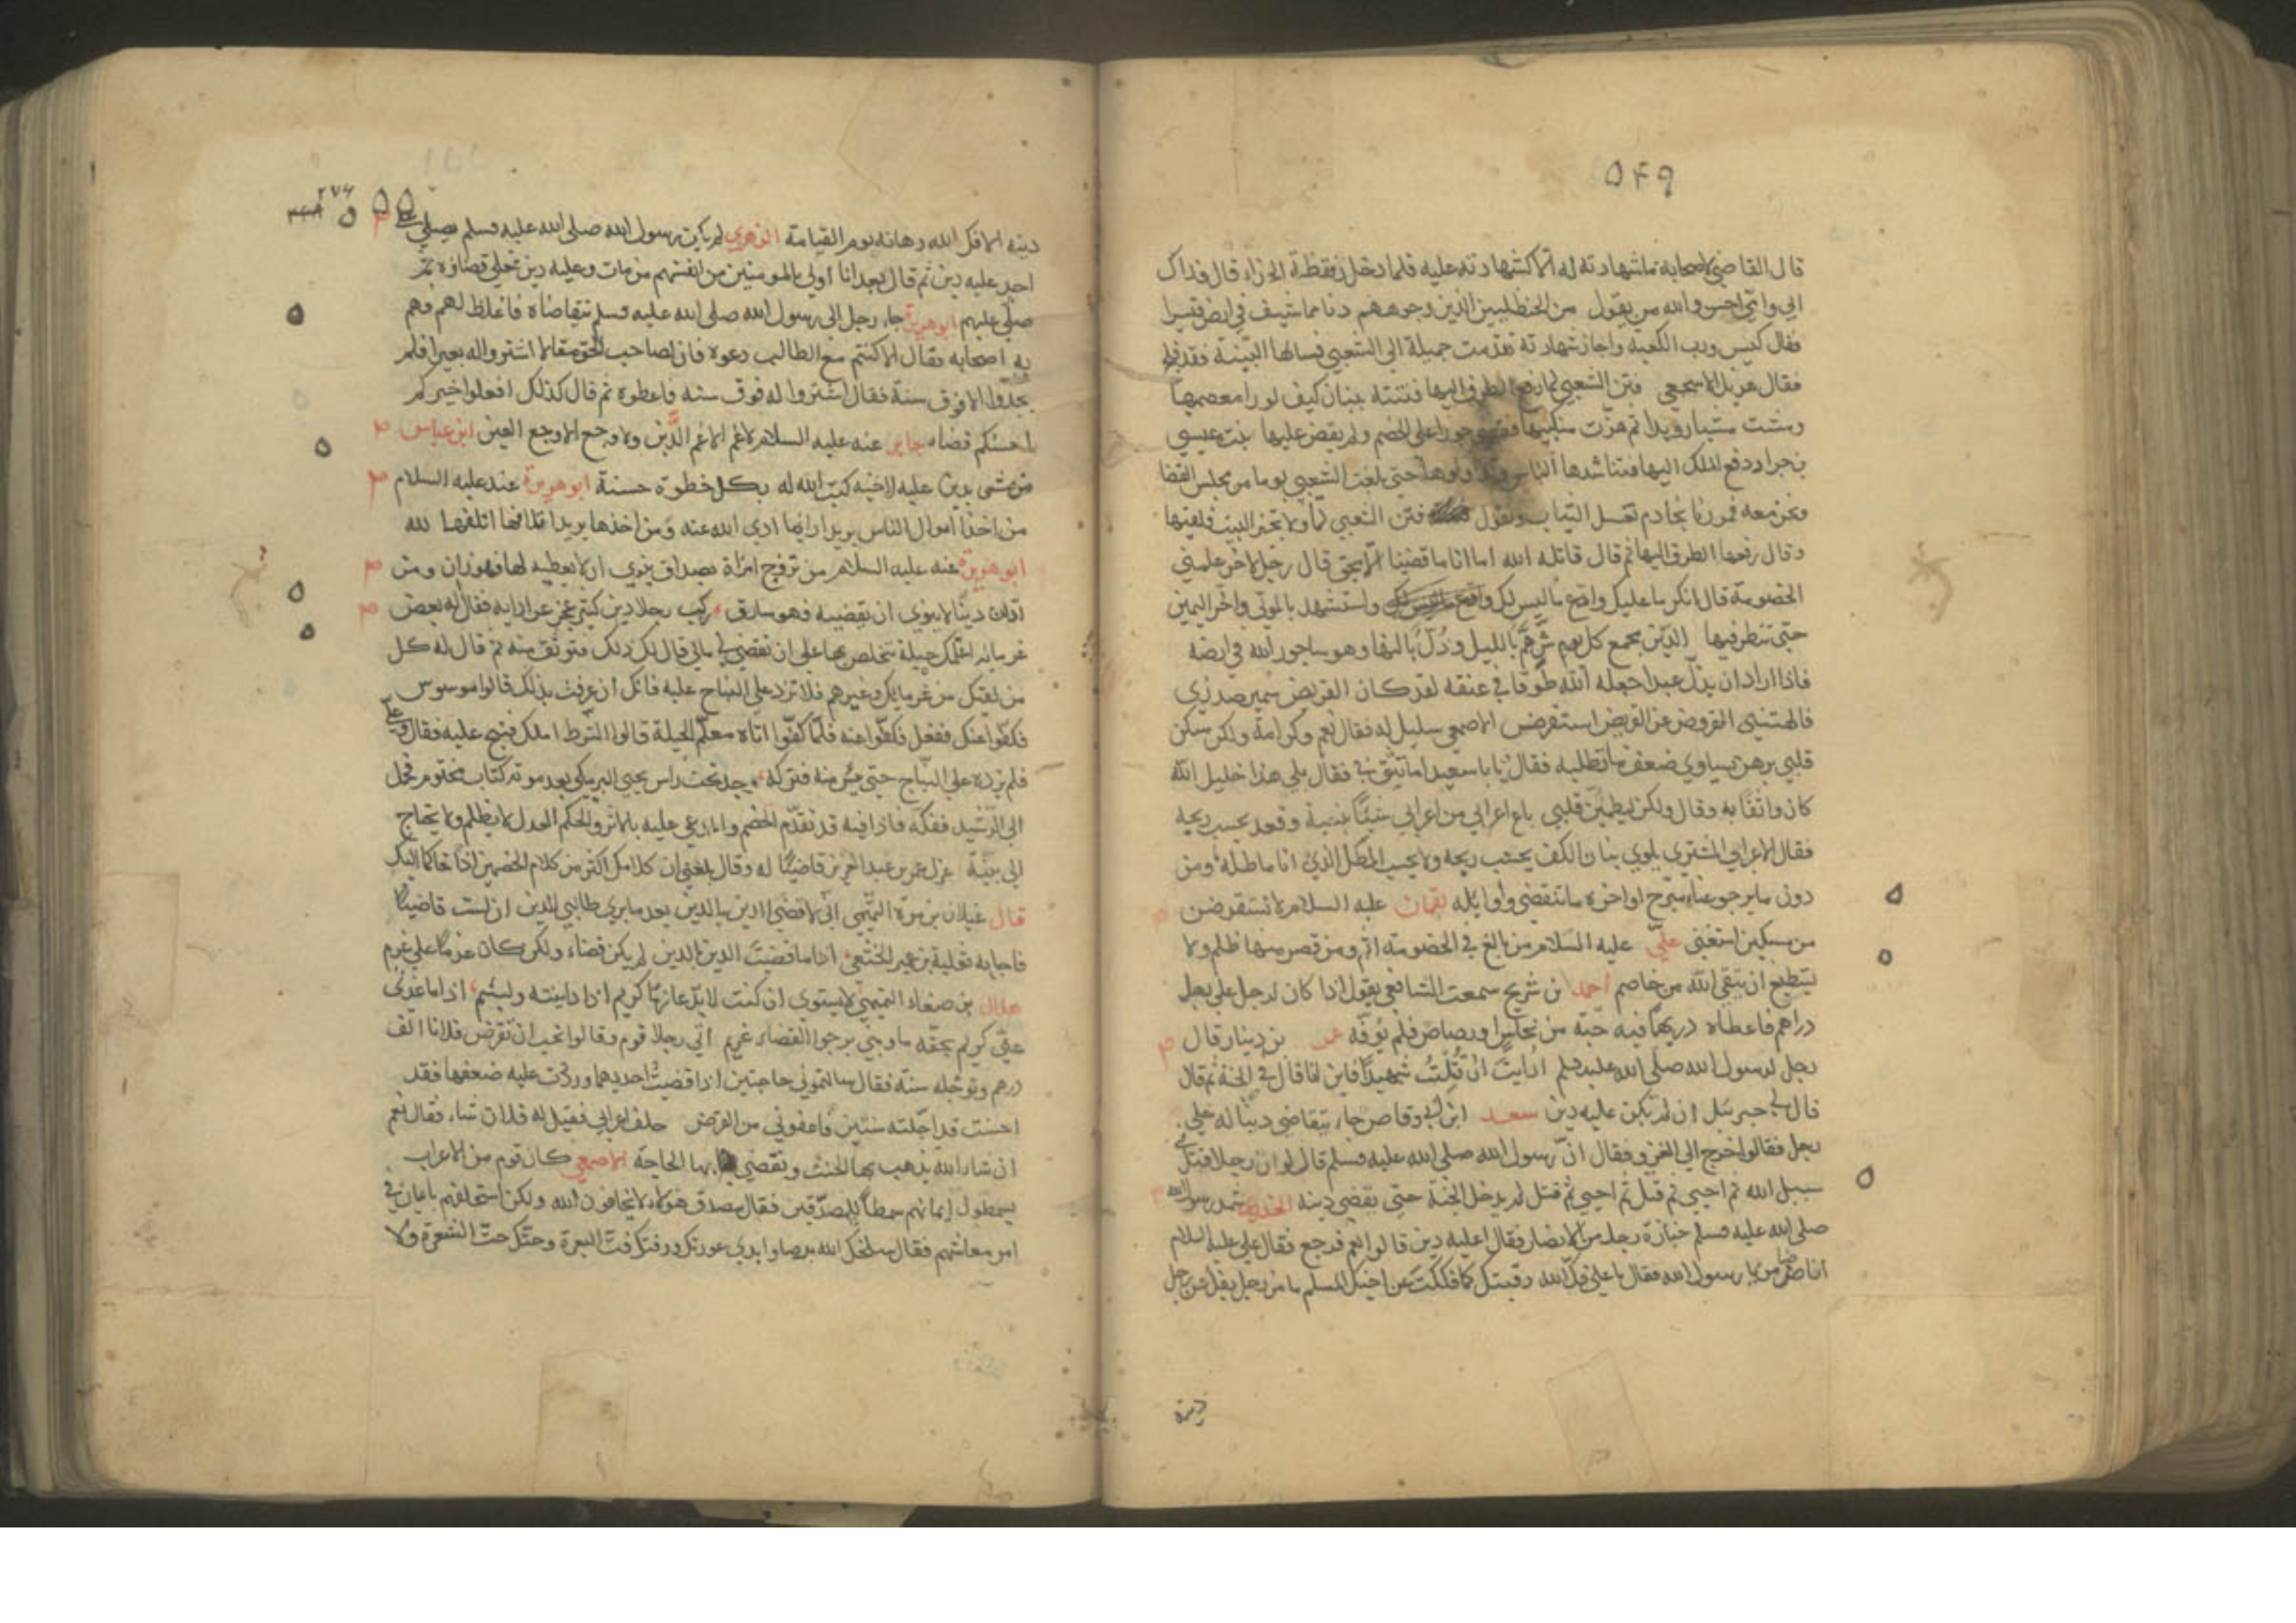 ٥٤٩
قال القاضي لاصحابه ما شهادته له انما كشهادته عليه فلما دخل قال فداك
ابي واني احسن والله من يقول من الحنظليين الذين وجوههم
فقال كيس ورب الكعبة واجاز شهادته تقدمت جميلة الي الشعبي فسالها البينة
فقال هزيل الاشجعي فتن الشعبي لما رفع الطرف اليها فتنته ببنان كيف لو رأ معصميها
ومشت مشيا رويدا ثم هزت منكبيها فقضي جورا علي الخصم ولم يقض عليها بنت عيسي
بن جراد دفع الملك اليها فتناشدها الناس حتي بلغت الشعبي يوما من مجلس القضا
ونحن معه فمررنا بخادم تغسل الثياب وتقول فتن الشعبي لما ولا تخير البيت فلقنها
وقال رفع الطرف اليها ثم قال قاتله الله اما انا ما قضينا الا بحق قال رجل لاخر علمني
الخصومة قال انكر ما عليك وادع ما ليس لك واستشهد بالموتي واخر اليمين
حتي تنظر فيها الدين يجمع كل بوس هم بالليل وذل بالنهار وهو ساجور الله في ارضه
فاذا اراد ان يذل عبدا جعله الله طوقا في عنقه لقد كان القريض سمير صدري
فالهتني القروض عن القريض استقرض الاصمعي خليل له فقال نعم وكرامة ولكن سكن
قلبي برهن يساوي ضعف ما تطلبه فقال يا با سعيد اما تثق بي فقال بلي هذا خليل الله
كان واثقا به وقال ولكن ليطمئن قلبي باع اعرابي من اعرابي شيئا بنسية وقعد يحسب ربحه
فقال الاعرابي المشتري يلوي بنان الكف يحسب ربحه ولا يحسب المطل الذي انا ماطله ومن
دون ما يرجو عناء مبرح اواخره ما تنقضي واوايله لقمان عليه السلام لا تستقرضن
من مسكين استغني علي عليه السلام من بالغ في الخصومة اثم ومن قصر منها ظلم ولا
يستطيع ان يتقي الله من خاصم احمد بن شريح سمعت الشافعي يقول اذا كان لرجل علي رجل
دراهم فاعطاه درهما فيه حبة من نحاس او رصاص فلم يوفه عمرو بن دينار قال
رجل لرسول الله صلي الله عليه وسلم ارأيت ان قتلت شهيدا فاين انا قال في الجنة ثم قال
قال لي جبرئيل ان لم يكن عليه دين سعد ابن ابي وقاص جاء يتقاضي دينا له علي
رجل فقالوا خرج الي الغزو فقال ان رسول الله صلي الله عليه وسلم قال لو ان رجلا قتل في
سبيل الله ثم احيي ثم قتل ثم احيي ثم قتل لم يدخل الجنة حتي يقضي دينه الخدري شهد رسول الله
صلي الله عليه وسلم جنازة رجل من الانصار فقال اعليه دين قالوا نعم فرجع فقال علي عليه السلام
انا ضامن يا رسول الله فقال يا علي فك الله رقبتك كما فككت عن اخيك المسلم ما من رجل يفك عن رجل
دينه
٥٥٠
٢٧٦
دينه الا فك الله رهانه يوم القيامة الزهري لم يكن رسول الله صلي الله عليه وسلم يصلي علي
احد عليه دين ثم قال بعد انا اولي بالمومنين من انفسهم من مات وعليه دين فعلي قضاؤه ثم
صلي عليهم ابو هريرة جاء رجل الي رسول الله صلي الله عليه وسلم يتقاضاه فاغلظ لهم وهم
به اصحابه فقال الا كنتم مع الطالب دعوه فان لصاحب الحق مقالا اشتروا له بعيرا فلم
يجدوا الا فوق سنه فقال اشتروا له فوق سنه فاعطوه ثم قال كذلك افعلوا خيركم
احسنكم قضاء جابر عنه عليه السلام لا غم الا غم الدين ولا وجع الا وجع العين ابن عباس
من مشي بدين عليه لاخيه كتب الله له بكل خطوة حسنة ابو هريرة عنه عليه السلام
من اخذ اموال الناس يريد اداءها ادي الله عنه ومن اخذها يريد اتلافها اتلفها الله
ابو هريرة عنه عليه السلام من تزوج امراة بصداق ينوي ان لا يعطيه لها فهو زان ومن
ادان دينا لا ينوي ان يقضيه فهو سارق ركب رجلا دين كثير عجز عن ادايه فقال له بعض
غرمايه اعلمك حيلة تتخلص بها علي ان تقضي لي مالي قال لك ذلك فتوثق منه ثم قال له كل
من لقيك من غرمايك وغيرهم فلا تزد علي النباح عليه فانك ان عرفت بذلك قالوا موسوس
فكفوا عنك ففعل فكفوا عنه فلما كفوا اتاه معلم الحيلة قال الشرط املك فنبح عليه فقال وعلي
فلم يزده علي النباح حتي يئس منه فتركه وجد تحت راس يحيي البرمكي بعد موته كتاب مختوم فحمل
الي الرشيد ففكه فاذا فيه قد تقدم الخصم والمدعي عليه بالاثر والحكم العدل لا يظلم ولا يحتاج
الي بينة عزل عمر بن عبد العزيز قاضيا له وقال بلغني ان كلامك اكثر من كلام الخصمين اذا تحاكما اليك
قال غيلان بن مرة التيمي اني لاقضي الدين بالدين بعد ما يري طالبي بالدين ان لست قاضيا
فاجابه ثعلبة بن عمير الخثعمي اذا ما قضيت الدين بالدين لم يكن قضاء ولكن كان غرما علي غرم
هلال بن صنعاء التميمي لا يستوي ان كنت لابد عازما كريم اذا داينته ولئيم اذا ما عدني
عن حقي كريم بحقه ما وجهي يرجو القضاء غريم اتي رجلا قوم وقالوا نحب ان تقرض فلانا الف
درهم وتوجله سنة فقال سالتموني حاجتين اذا قضيت احديهما وردت عليه ضعفها فقد
احسنت قد اجلته سنتين فاعفوني من القرض حلف اعرابي فقيل له قل ان شاء فقال نعم
ان شاء الله يذهب بها الحنث ويقضي بها الحاجة الاصمعي كان قوم من الاعراب
يسمطون ايمانهم سمطا للمصدقين فقال مصدق هؤلاء لا يخافون الله ولكن استحلفهم بايمان في
امر معاشهم فقال سلخك الله برصا وابدي عورتك ورفتك رفت البعرة وحتك حت الشعرة ولا